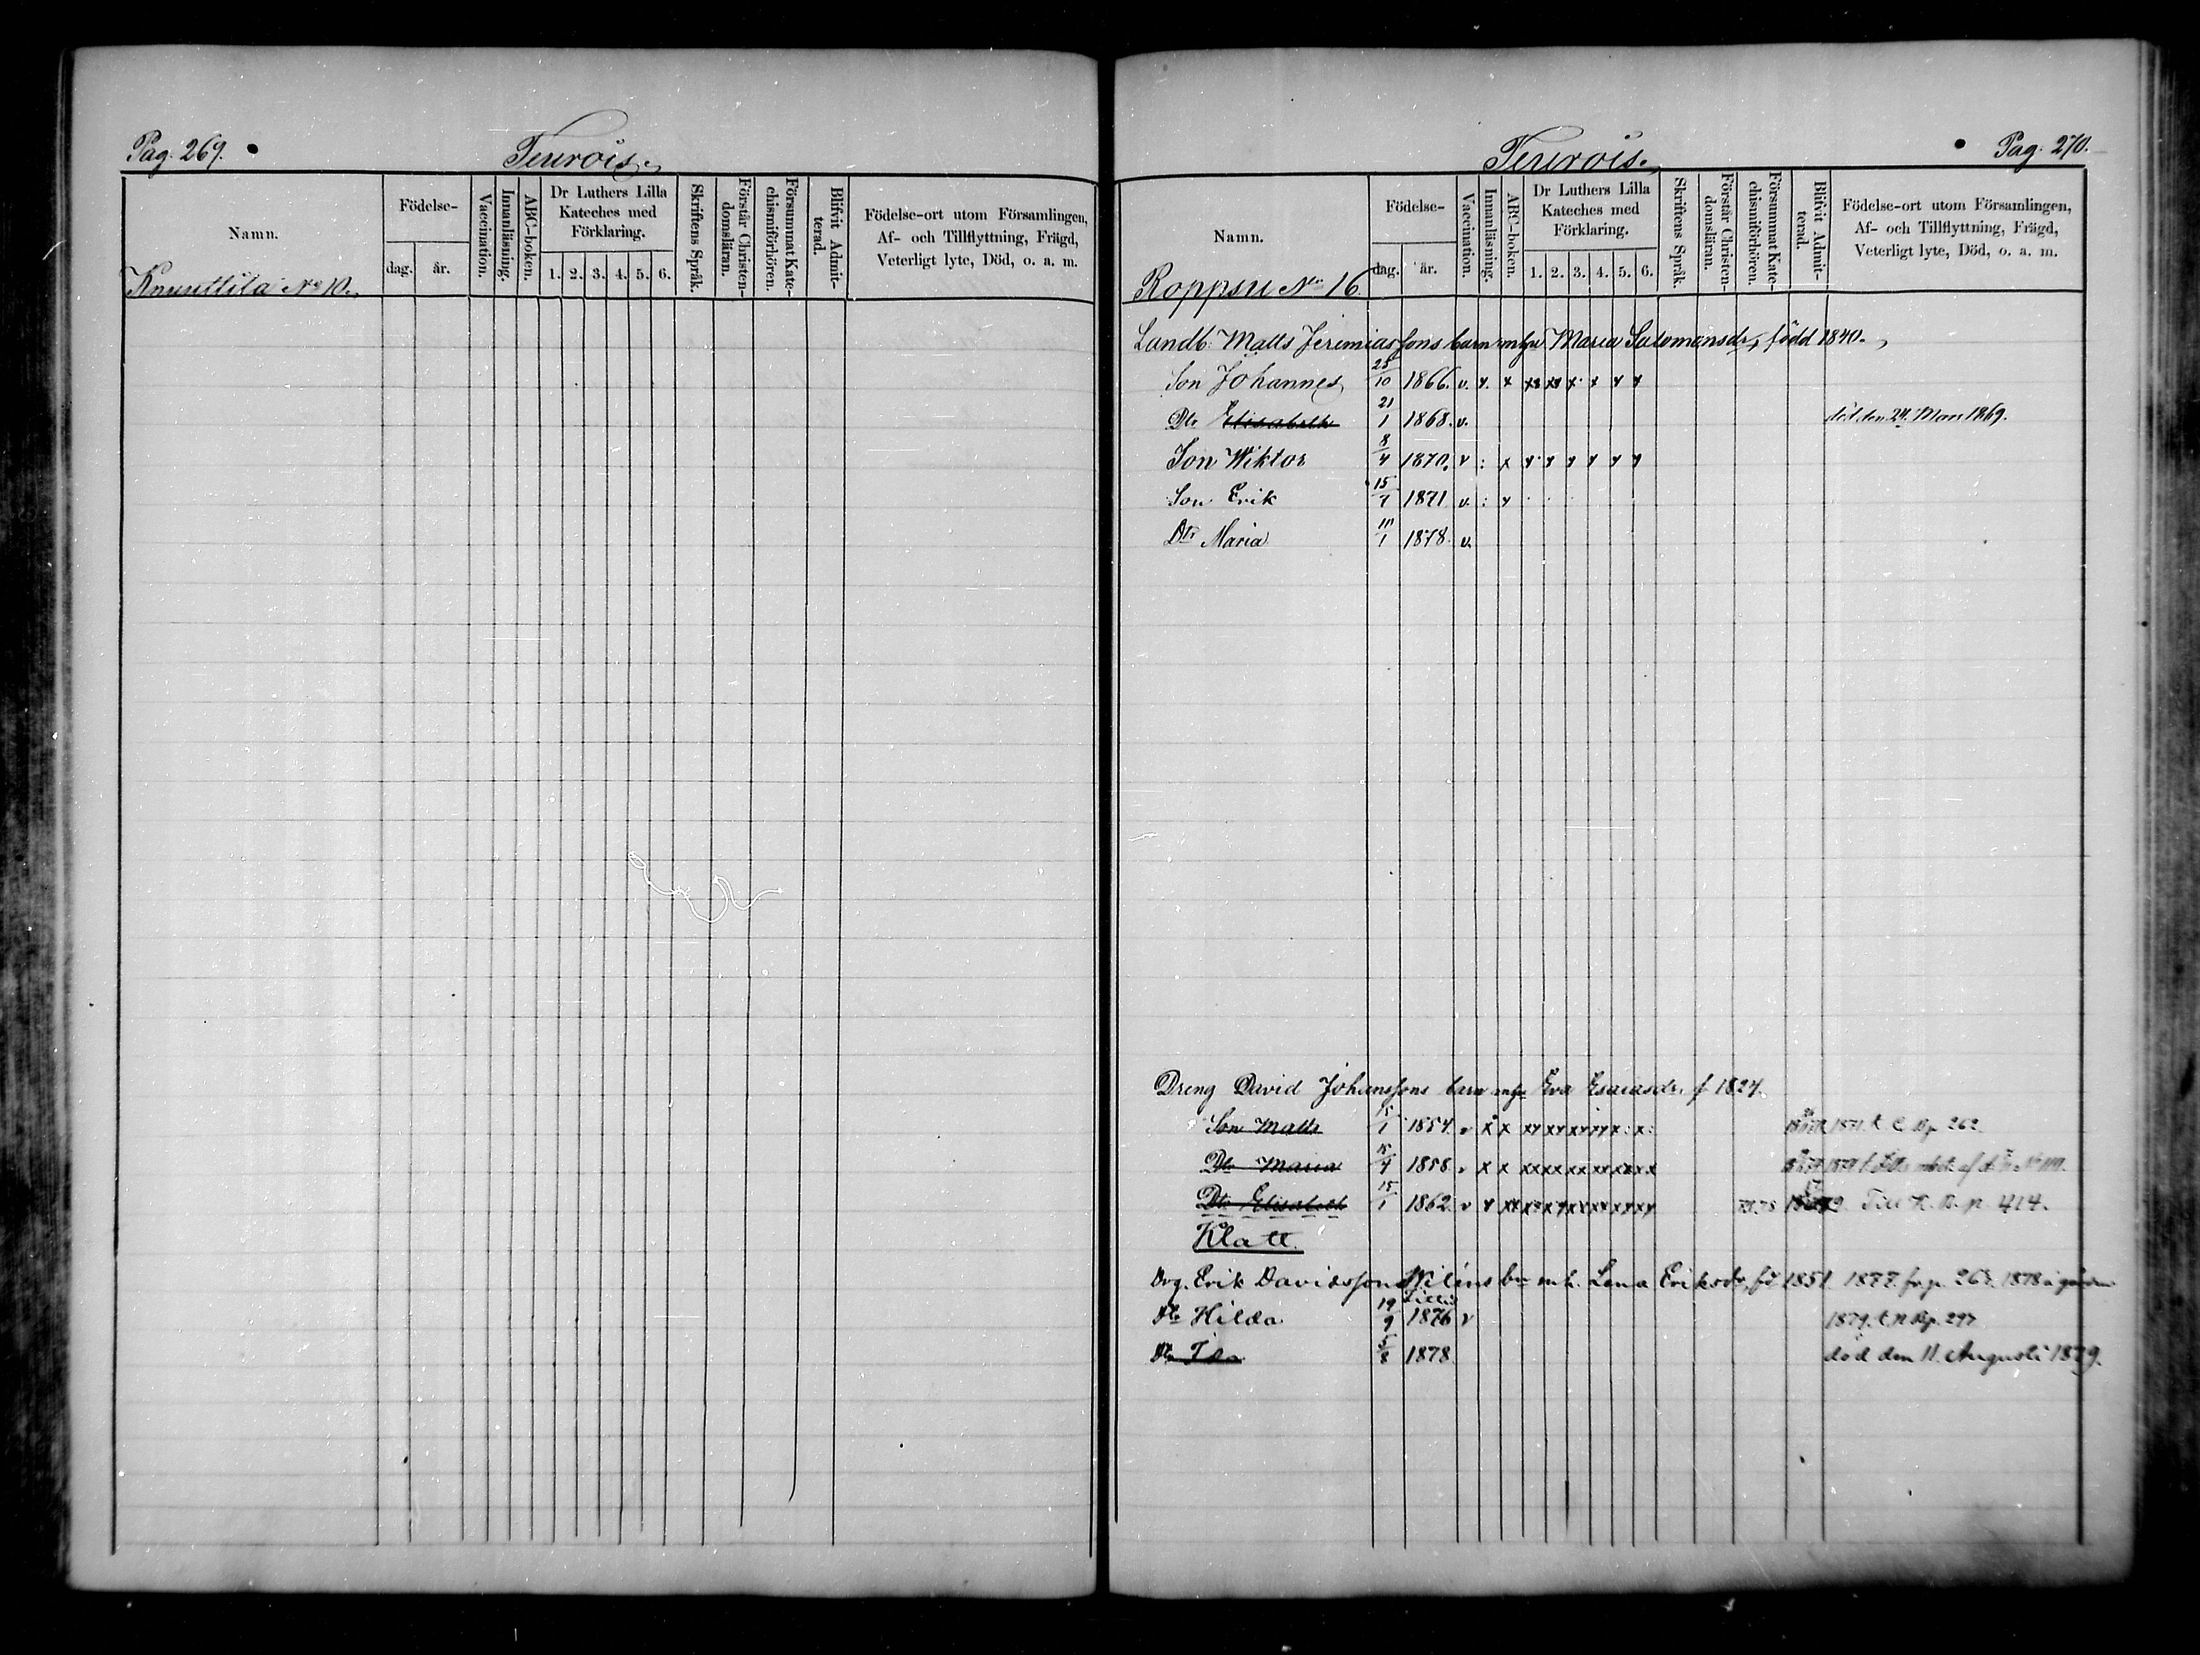 Pag. 269.
Teurois.
Namn.
Födelse-
dag. år.
Vaccination.
Innanläsning.
ABC-boken.
Dr Luthers Lilla
Kateches med
Förklaring.
1. 2. 3. 4. 5. 6.
Skriftens Språk.
Förstår Christen-
domsläran.
Försummat Kate-
chismiförhören.
Blifvit Admit-
terad.
Födelse-ort utom Församlingen,
Af- och Tillflyttning, Frägd,
Veterligt lyte, Död, o. a. m.
Knuuttila No 10.
Pag. 270.
Teurois.
Namn.
Födelse-
dag. år.
Vaccination.
Innanläsning.
ABC-boken.
Dr Luthers Lilla
Kateches med
Förklaring.
1. 2. 3. 4. 5. 6.
Skriftens Språk.
Förstår Christen-
domsläran.
Försummat Kate-
chismiförhören.
Blifvit Admit-
terad.
Födelse-ort utom Församlingen,
Af- och Tillflyttning, Frägd,
Veterligt lyte, Död, o. a. m.
Roppsu No 16
Landb. Matts Jeremiassons barn m hu Maria Salomonsdr, född 1840.
Son Johannes 28/10 1866. v. x. x xx xx x x x x
Dtr Elisabeth 21/1 1868. v. död den 24 Mars 1869.
Son Wiktor 8/4 1870. v : x x x x x x x
Son Erik 15/7 1871 v. : x
Dtr Maria 1878. v.
Dreng David Johanssons barn m hu Eva Esaiasdr. f 1827.
Son Matts 1854. v x x 1871. t. C. B. p. 262.
Dtr Maria 1858. v x x
Dtr Elisabeth 15/1 1862. v x Till K. B. p. 414.
Klatt.
Drg. Erik Davidssons Niléns bn m h. Lena Eriksdr, fö 1851. 1877. fr p. 1878
Dtr Hilda 19/9 1876 v 1879. t. N B p. 297
Dtr Ida 5/8 1878. död den 11. Augusti 1879.